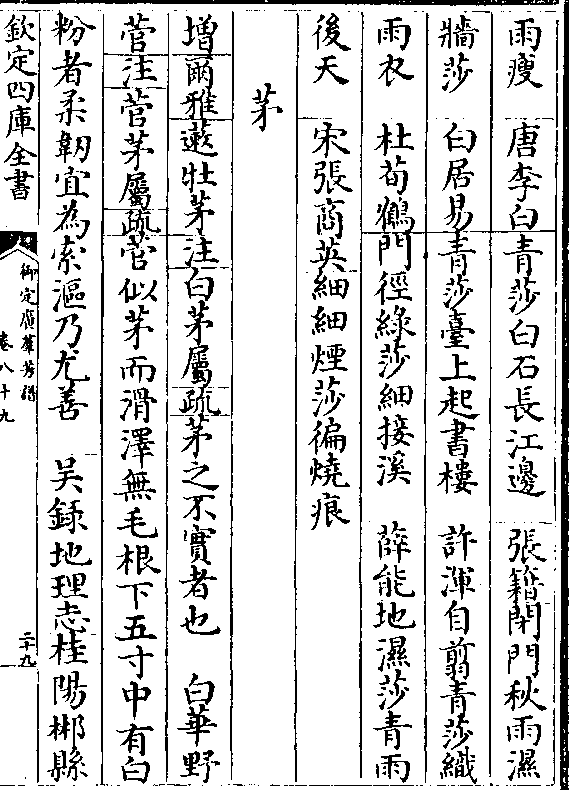 雨瘦　唐李白青莎白石長江邊　張籍閉門秋雨濕
牆莎　白居易青莎臺上起書樓　許渾自翦青莎織
雨衣　杜荀鶴門徑綠莎細接溪　薛能地濕莎青雨
後天　宋張商英細細煙莎徧燒痕
茅
增爾雅藗牡茅注白茅屬疏茅之不實者也　白華野
菅注菅茅屬疏菅似茅而滑澤無毛根下五寸中有白
粉者柔韌宜為索漚乃尤善　吴錄地理志桂陽郴縣
欽定四庫全書
御定廣羣芳譜
卷八十九
二十九